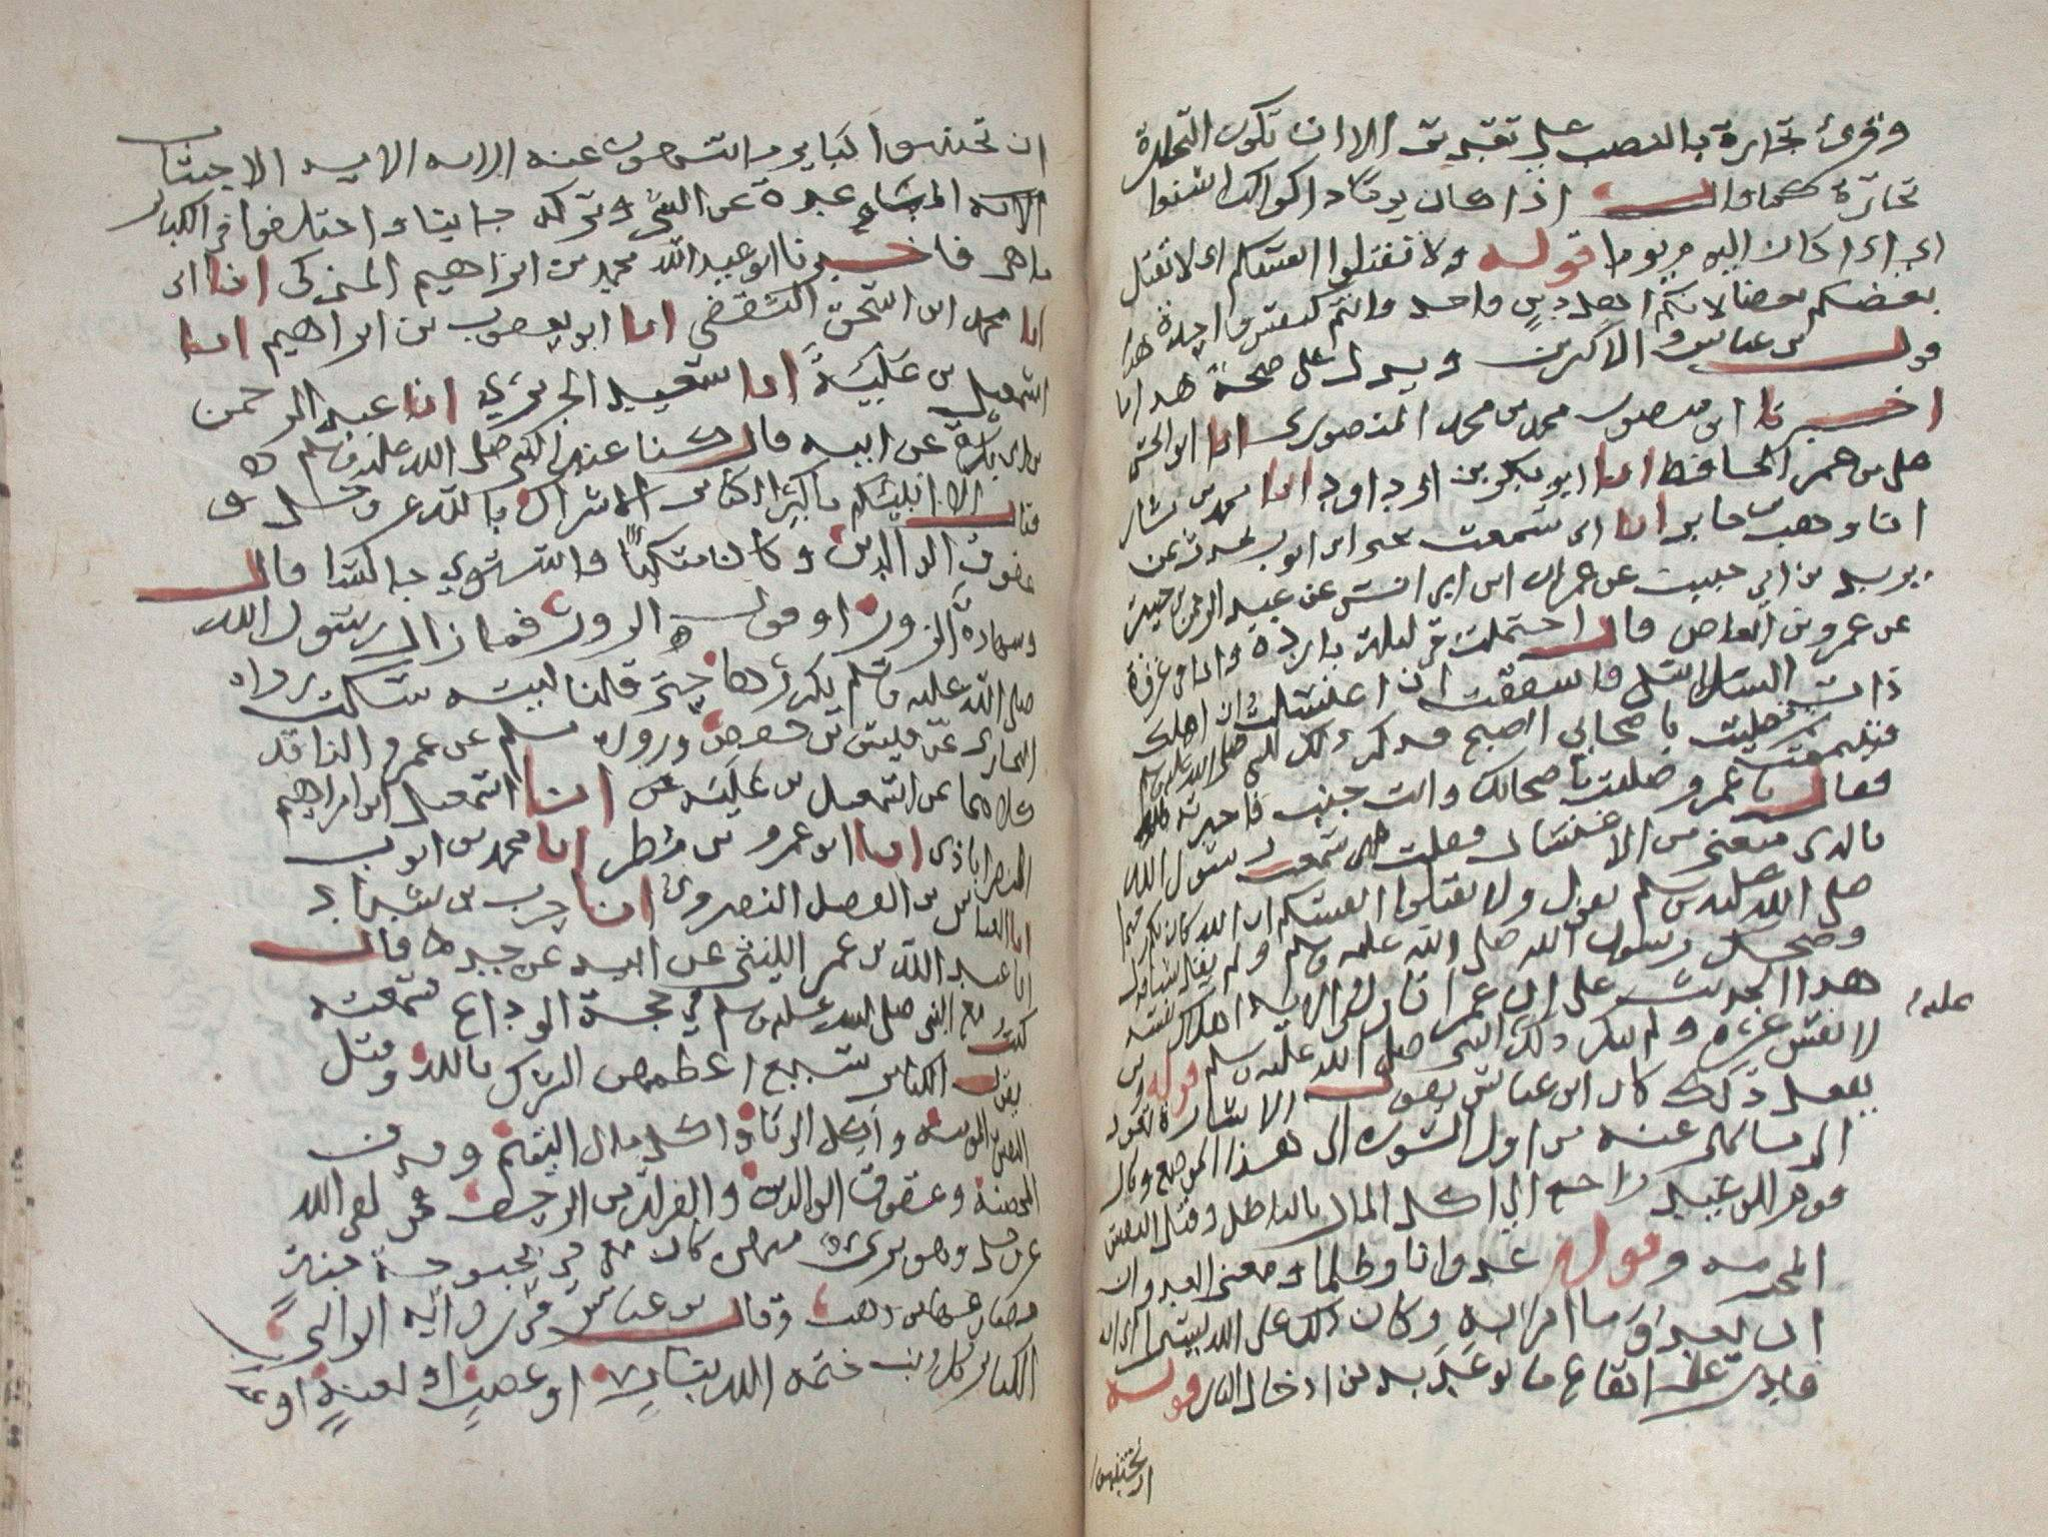 وقرئ تجارة بالنصب على تقدير الا ان تكون التجارة
تجارة كما قال اذا كان يوما ذا كواكب اشنعا
اى اذا كان اليوم يوما قوله ولا تقتلوا انفسكم اى لا يقتل
بعضكم بعضا لانكم اهل دين واحد وانتم كنفس واحدة هذا
قول بن عباس والاكثرين ويدل على صحة هذا ما
اخبرنا ابو منصور محمد بن محمد المنصورى انا ابو الحسن
على بن عمر الحافظ انا ابو بكر بن ابى داود انا محمد بن بشار
انا وهب بن جابر انا ابى سمعت يحيى ابن ايوب يحدث عن
يزيد بن ابى حبيب عن عمران ابن ابى انس عن عبد الرحمن بن جبير
عن عمرو بن العاص قال احتلمت فى ليلة باردة وانا فى غزوة
ذات السلاسل فاشفقت ان اغتسلت ان اهلك
فتيممت ثم صليت باصحابى الصبح فذكر ذلك للنبى صلى الله عليه وسلم
فقال يا عمرو صليت باصحابك وانت جنب فاخبرته
بالذى منعنى من الاغتسال فقلت انى سمعت رسول الله
صلى الله عليه وسلم يقول ولا تقتلوا انفسكم ان الله كان بكم رحيما
وضحك رسول الله صلى الله عليه وسلم ولم يقل شيا فدل
هذا الحديث على ان عمرا تاول فى الاية اهلاك نفسه
عليه
لا نفس غيره ولم ينكر ذلك النبى صلى الله عليه وسلم قوله ومن
يفعل ذلك كان ابن عباس يقول الاشارة تعود
الى ما نهى عنه من اول السورة الى هذا الموضع وقال
قوم الوعيد راجع الى اكل المال بالباطل وقتل النفس
المحرمة وقوله عدوانا وظلما ومعنى العدوان
ان يعدو ما امر به وكان ذلك على الله يسيرا اى انه
قادر على ايقاع ما توعد به من ادخال النار قوله
ان تجتنبوا
ان تجتنبوا كباير ما تنهون عنه الاية الاجتناب
المباعدة عن الشى وتركه جانبا واختلفوا فى الكباير
ما هى فاخبرنا ابو عبد الله محمد بن ابراهيم المزكى انا ابى
انا محمد ابن اسحق الثقفى انا ابو يعقوب بن ابراهيم انا
اسمعيل بن علية انا سعيد الجريرى انا عبد الرحمن
بن ابى بكرة عن ابيه قال كنا عند النبى صلى الله عليه وسلم
فقال الا انبئكم باكبر الكباير الاشراك بالله عز وجل و
عقوق الوالدين وكان متكيا واستوى جالسا قال
وشهادة الزور او قول الزور فما زال رسول الله
صلى الله عليه وسلم يكررها حتى قلنا ليته سكت رواه
البخارى عن قيس بن حفص ورواه مسلم عن عمرو الناقد
كلاهما عن اسمعيل بن علية انا اسمعيل ابن ابراهيم
النصراباذى انا ابو عمرو بن مطر انا محمد بن ايوب
انا العباس بن الفضل انا حرب بن شداد
انا عبد الله بن عمر الليثى عن ابيه عن جده قال
كنت مع النبى صلى الله عليه وسلم فى حجة الوداع سمعته
يقول الكباير تسع اعظمهن الشرك بالله وقتل
النفس المومنة واكل الربا واكل مال اليتيم وقذف
المحصنة وعقوق الوالدين والفرار من الزحف فمن لقى الله
عز وجل وهو برئ منهن كان معى فى بحبوحة جنة
مصاريعها من ذهب وقال بن عباس فى رواية الوالبى
الكباير كل ذنب ختمه الله بنار او غضب او لعنة او